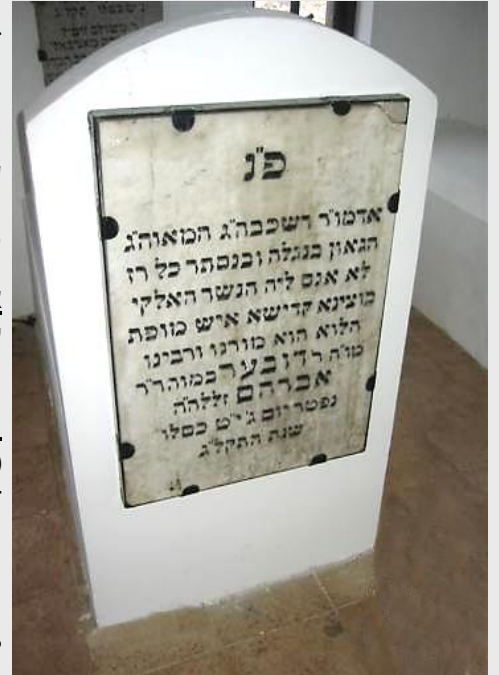 פ"נ
אדמו"ר רשכבה"ג המאוה"ג
הגאון בנגלה ובנסתר כל רז
לא אנס ליה הנשר האלקי
בוצינא קדישא איש מופת
הלוא הוא מורנו ורבינו
מו"ה ר דו בער במוהר"ר
אברהם זללה"ה
נפטר יום ג' י"ט כסלו
שנת התקל"ג